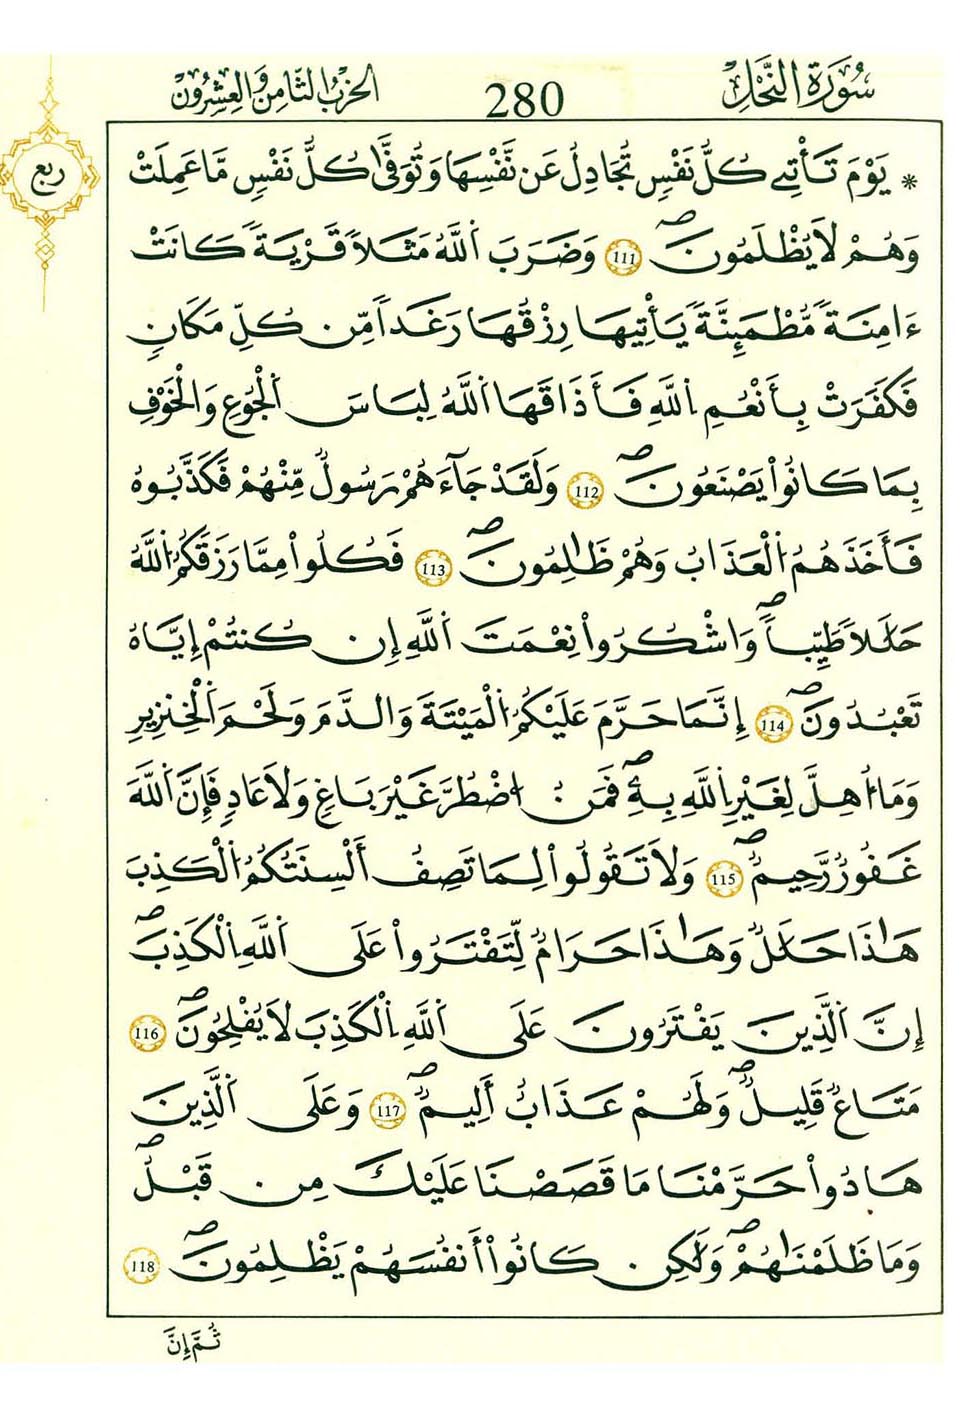 سُورَةُ النَّحْلِ 280 الحِزْبُ الثَّامِنُ وَالعِشْرُونَ
ربع
* يَوْمَ تَأْتِے كُلُّ نَفْسٖ تُجَٰدِلُ عَن نَّفْسِهَا وَتُوَفّ۪يٰ كُلُّ نَفْسٖ مَّا عَمِلَتْ
وَهُمْ لَا يُظْلَمُونَۖ 111 وَضَرَبَ اَ۬للَّهُ مَثَلاٗ قَرْيَةٗ كَانَتْ
ءَامِنَةٗ مُّطْمَئِنَّةٗ يَأْتِيهَا رِزْقُهَا رَغَداٗ مِّن كُلِّ مَكَانٖ
فَكَفَرَتْ بِأَنْعُمِ اِ۬للَّهِ فَأَذَٰقَهَا اَ۬للَّهُ لِبَاسَ اَ۬لْجُوعِ وَالْخَوْفِ
بِمَا كَانُواْ يَصْنَعُونَۖ 112 وَلَقَدْ جَآءَهُمْ رَسُولٞ مِّنْهُمْ فَكَذَّبُوهُ
فَأَخَذَهُمُ اُ۬لْعَذَابُ وَهُمْ ظَٰلِمُونَۖ 113 فَكُلُواْ مِمَّا رَزَقَكُمُ اُ۬للَّهُ
حَلَٰلاٗ طَيِّباٗۖ وَاشْكُرُواْ نِعْمَتَ اَ۬للَّهِ إِن كُنتُمْ إِيَّاهُ
تَعْبُدُونَۖ 114 إِنَّمَا حَرَّمَ عَلَيْكُمُ اُ۬لْمَيْتَةَ وَالدَّمَ وَلَحْمَ اَ۬لْخِنزِيرِ
وَمَا أُهِلَّ لِغَيْرِ اِ۬للَّهِ بِهِۦۖ فَمَنُ اُ۟ضْطُرَّ غَيْرَ بَاغٖ وَلَا عَادٖ فَإِنَّ اَ۬للَّهَ
غَفُورٞ رَّحِيمٞۖ 115 وَلَا تَقُولُواْ لِمَا تَصِفُ أَلْسِنَتُكُمُ اُ۬لْكَذِبَ
هَٰذَا حَلَٰلٞ وَهَٰذَا حَرَامٞ لِّتَفْتَرُواْ عَلَي اَ۬للَّهِ اِ۬لْكَذِبَۖ
إِنَّ اَ۬لذِينَ يَفْتَرُونَ عَلَي اَ۬للَّهِ اِ۬لْكَذِبَ لَا يُفْلِحُونَۖ 116
مَتَٰعٞ قَلِيلٞۖ وَلَهُمْ عَذَابٌ أَلِيمٞۖ 117 وَعَلَي اَ۬لذِينَ
هَادُواْ حَرَّمْنَا مَا قَصَصْنَا عَلَيْكَ مِن قَبْلُۖ
وَمَا ظَلَمْنَٰهُمْۖ وَلَٰكِن كَانُواْ أَنفُسَهُمْ يَظْلِمُونَۖ 118
ثُمَّ إِنَّ